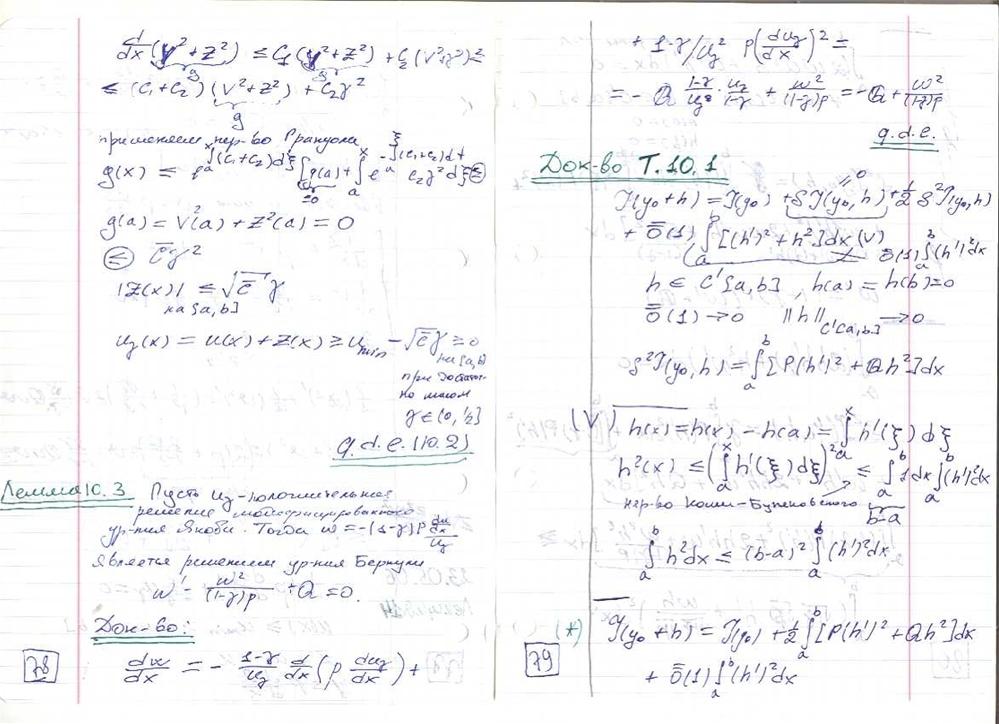 d/dx (V²+Z²) ≤ C₁(V²+Z²) + C₂(V²+γ²) ≤
g g
≤ (C₁+C₂)(V²+Z²) + C₂γ²
g
применяем нер-во Грануола
g(x) ≤ e^{∫ₐˣ(C₁+C₂)dξ} [g(a) + ∫ₐˣ e^{-∫ₐ^ξ(C₁+C₂)dt} C₂γ² dξ] ≤
=0
g(a) = V²(a) + Z²(a) = 0
≤ c̄γ²
|Z(x)| ≤ √c̄ γ
на [a,b]
u_γ(x) = u(x) + Z(x) ≥ u_min − √c̄ γ ≥ 0
на [a,b]
при достаточ-
но малом
γ ∈ (0, ½]
q.d.e. (10.2)
Лемма 10.3 Пусть u_γ - положительное
решение модифицированного
ур-ния Якоби. Тогда w = −(1−γ)p (du_γ/dx)/u_γ
является решением ур-ния Бернули
w' − w²/((1−γ)p) + Q = 0.
Док-во:
dw/dx = − (1−γ)/u_γ d/dx (p du_γ/dx) +
78
+ 1−γ/u_γ² p(du_γ/dx)² =
= − Q (1−γ)/u_γ · u_γ/(1−γ) + w²/((1−γ)p) = −Q + w²/((1−γ)p)
q.d.e.
Док-во Т.10.1
=0
J(y₀+h) = J(y₀) + δJ(y₀,h) + ½ δ²J(y₀,h)
+ ō(1) ∫ₐᵇ [(h')²+h²]dx (V)
ō(1) ∫ₐᵇ (h')²dx
h ∈ C'[a,b], h(a) = h(b) = 0
ō(1) → 0 ||h||_{C'[a,b]} → 0
δ²J(y₀,h) = ∫ₐᵇ [P(h')² + Qh²]dx
(V) h(x) = h(x) − h(a) = ∫ₐˣ h'(ξ) dξ
h²(x) ≤ (∫ₐˣ h'(ξ)dξ)² ≤ ∫ₐᵇ 1dx ∫ₐᵇ (h')²dx
нер-во Коши-Буняковского b−a
∫ₐᵇ h²dx ≤ (b−a)² ∫ₐᵇ (h')²dx
(*) J(y₀+h) = J(y₀) + ½ ∫ₐᵇ [P(h')² + Qh²]dx
+ ō(1) ∫ₐᵇ (h')²dx
79